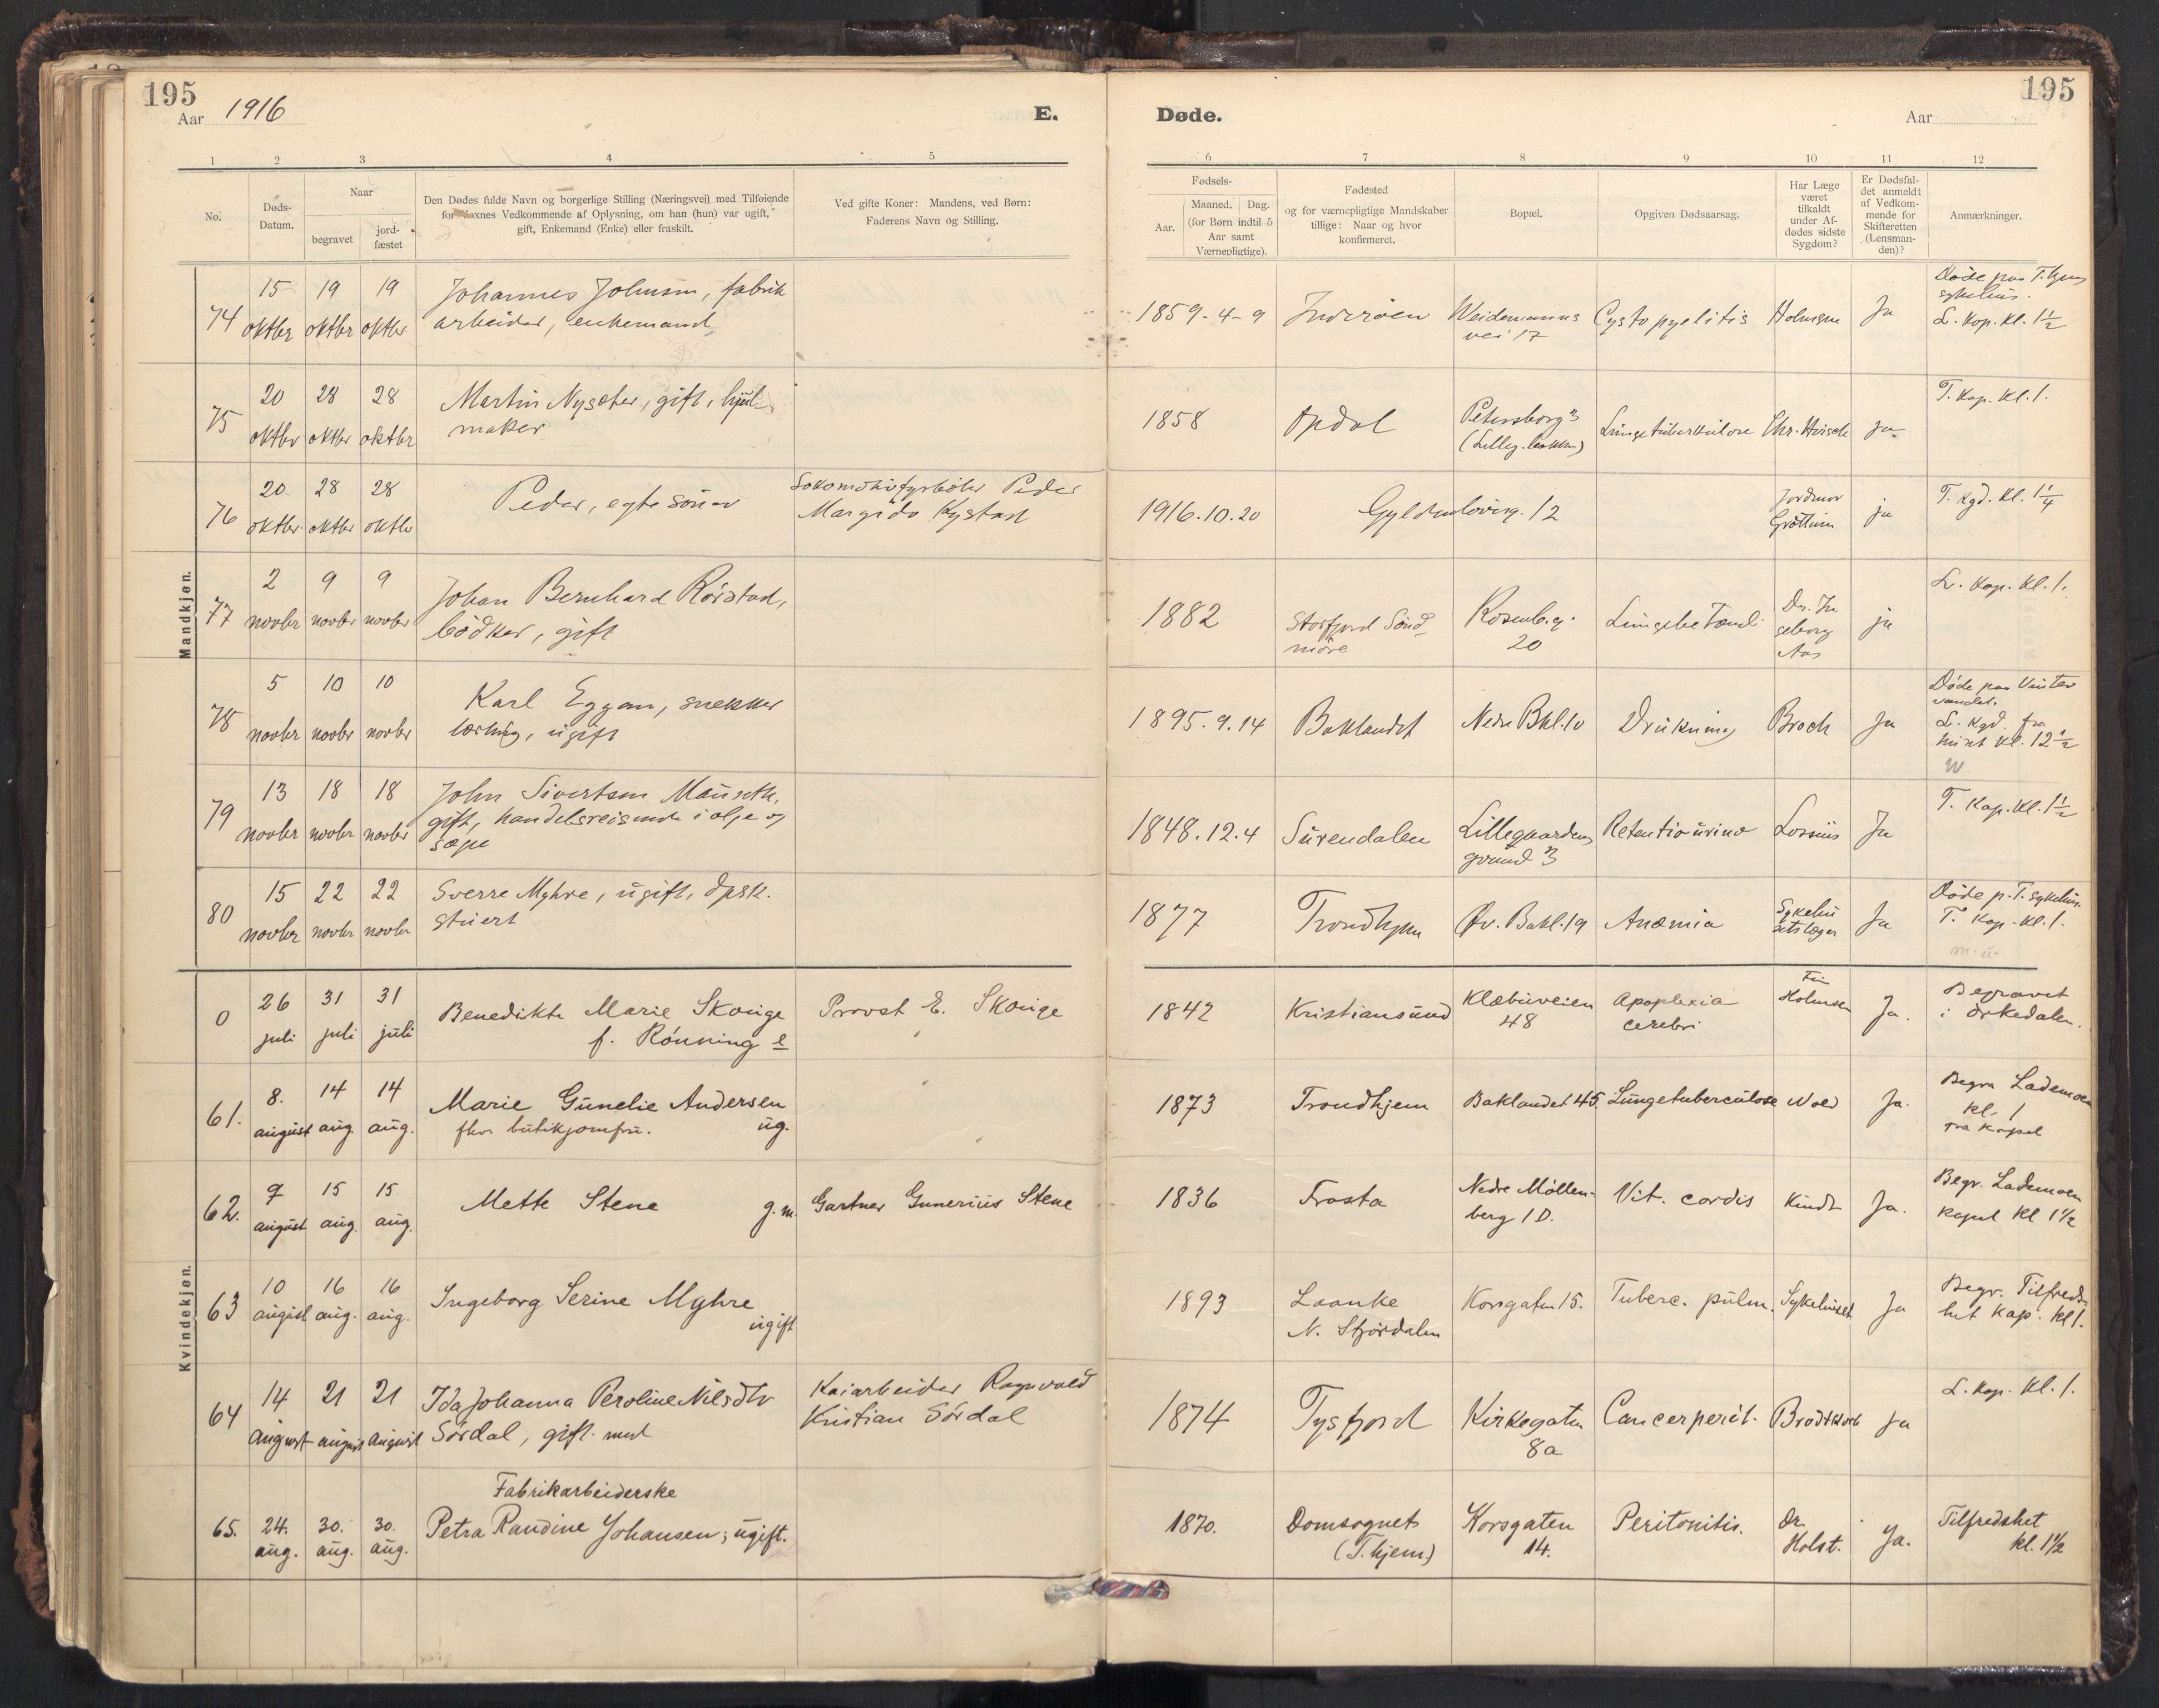 195
Aar 1916
E.
Døde.
195
Aar
1 2 3 4 5 6 7 8 9 10 11 12
No.
Døds-
Datum.
Naar
begravet
jord-
fæstet
Den Dødes fulde Navn og borgerlige Stilling (Næringsvei) med Tilføiende
for Voxnes Vedkommende af Oplysning, om han (hun) var ugift,
gift, Enkemand (Enke) eller fraskilt.
Ved gifte Koner: Mandens, ved Børn:
Faderens Navn og Stilling.
Fødsels-
Aar.
Maaned. Dag.
(for Børn indtil 5
Aar samt
Værnepligtige).
Fødested
og for værnepligtige Mandskaber
tillige: Naar og hvor
konfirmeret.
Bopæl.
Opgiven Dødsaarsag.
Har Læge
været
tilkaldt
under Af-
dødes sidste
Sygdom?
Er Dødsfal-
det anmeldt
af Vedkom-
mende for
Skifteretten
(Lensman-
den)?
Anmærkninger.
Mandkjøn.
74
15 oktbr
19 oktbr
19 oktbr
Johannes Johnsen, fabrik
arbeider, enkemand
1859-4-9
Inderøen
Weidemanns
vei 17
Cystopyelitis
Holmsen
Ja
Døde paa T.hjems
sykehus.
L. Kap. Kl. 1½
75
20 oktbr
28 oktbr
28 oktbr
Martin Nysæter, gift, hjul
maker
1858
Opdal
Petersborg 3
Lungetuberkulose
Chr. Huisek
ja
T. Kap. Kl. 1.
76
20 oktbr
28 oktbr
28 oktbr
Peder, egte søn av
Lokomotivfyrbøter Peder
Margido Kystad
1916.10.20
Gyldenløvesg. 12
Jordmor
Grøttum
ja
T. Kgd. Kl. 1¼
77
2 novbr
9 novbr
9 novbr
Johan Bernhard Rørstad,
bødker, gift
1882
Storfjord Sønd
møre
Rosenb.g.
20
Lungebetænd.
Dr. In
geborg
Aas
ja
L. Kap. Kl. 1.
78
5 novbr
10 novbr
10 novbr
Karl Eggan, snekker
lærling, ugift
1895.9.14
Baklandet
Nedre Bkl. 10
Drukning
Broch
Ja
Døde paa Vinter
vandet.
L. Kgd. fra
huset kl. 12½
79
13 novbr
18 novbr
18 novbr
John Sivertsen Mauseth,
gift, handelsreisende i olje og
sæpe
1848.12.4
Surendalen
Lillegaardens
grund 3
Retentio urino
Lossius
Ja
T. Kap. Kl. 1½
80
15 novbr
22 novbr
22 novbr
Sverre Myhre, ugift, dpsk.
stuert
1877
Trondhjem
Øv. Bakl. 19
Anæmia
Sykehu
setslæger
Ja
Døde p. T. sykehus.
T. Kap. Kl. 1.
Kvindekjøn.
0
26 juli
31 juli
31 juli
Benedikte Marie Skouge
f. Rønning e
Provst E. Skouge
1842
Kristiansund
Klæbuveien
48
Apoplexia
cerebri
Fru
Holmsen
Ja.
Begravet
i Orkedalen.
61.
8. august
14 aug.
14 aug.
Marie Gunelie Andersen
fhv. butikjomfru. ug.
1873
Trondhjem
Baklandet 45.
Lungetuberculose
Wold
Ja.
Begra Lademoen
kl. 1
fra Kapel
62.
9 august
15 aug.
15 aug.
Mette Stene g.m.
Gartner Gunerius Stene
1836
Frosta
Nedre Møllen-
berg 1 D.
Vit. cordis
Kindt
Ja.
Begr. Lademoen
Kapel kl 1½
63
10 august
16 aug.
16 aug.
Ingeborg Serine Myhre
ugift
1893
Laanke
N. Stjørdalen
Korsgaten 15.
Tuberc. pulm.
Sykehuset
Ja
Begr. Tilfreds-
het Kap. kl 1.
64
14 august
21 august
21 august
Ida Johanna Peroline Nilsdtr
Sørdal, gift med
Kaiarbeider Ragnvald
Kristian Sørdal
1874
Tysfjord
Kirkegaten
8a
Cancer perit.
Brodtkorb
ja
L. Kap. Kl. 1.
65.
24. aug.
30. aug.
30. aug.
Fabrikarbeiderske
Petra Randine Johansen; ugift.
1870.
Domsognet
(T.hjem)
Korsgaten
14.
Peritonitis.
Dr.
Holst.
Ja.
Tilfredshet
kl. 1½